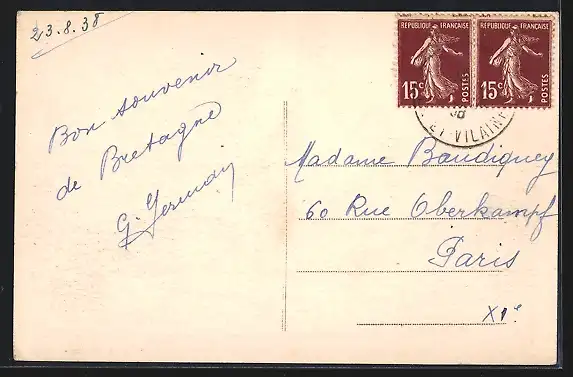 23.8.38
Bon souvenir
de Bretagne
G. Germain
REPUBLIQUE FRANÇAISE
15c POSTES
REPUBLIQUE FRANÇAISE
15c POSTES
38
ET-VILAINE
Madame Baudiquey
60 Rue Oberkampf
Paris
XIe